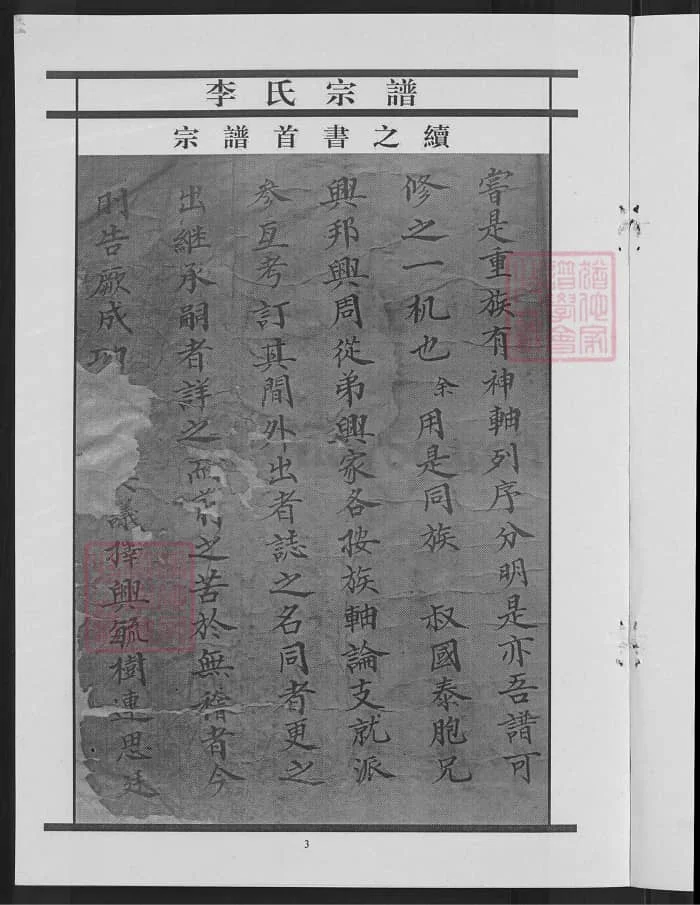 李氏宗譜
宗譜首書之續
嘗是重族有神軸列序分明是亦吾譜可
修之一机也余用是同族 叔國泰胞兄
興邦興周從弟興家各按族軸論支就派
參互考訂其間外出者誌之名同者更之
出繼承嗣者詳之而前之苦於無稽者今
則告厥成功
議擇興毓樹連思廷
3